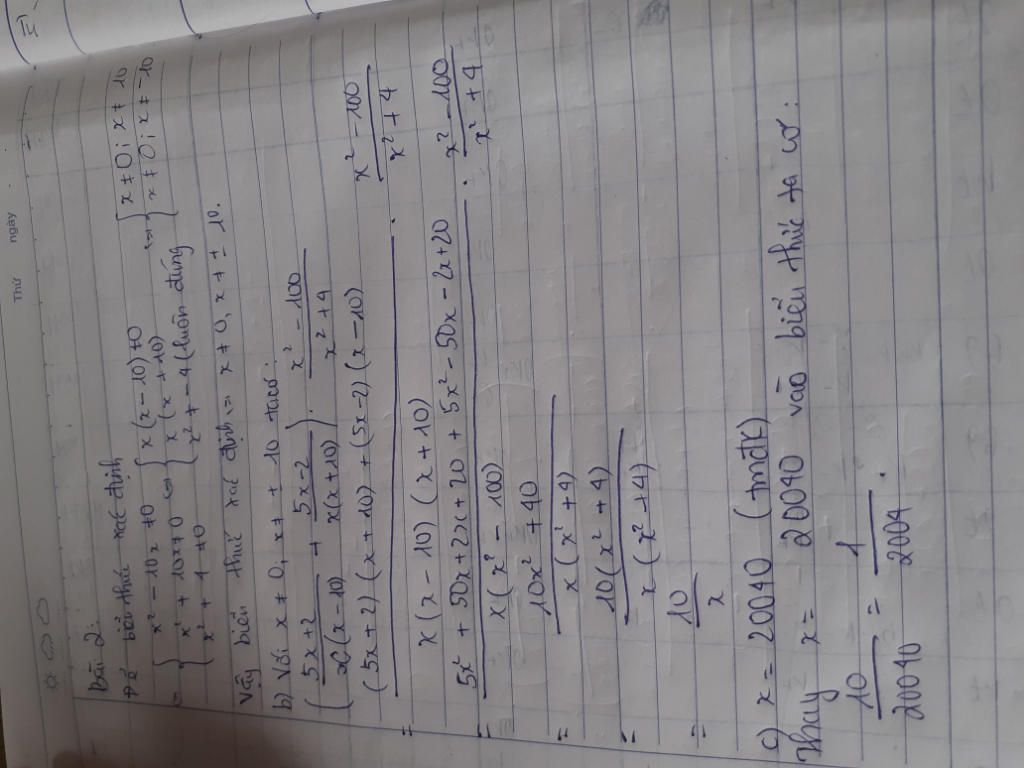 Thứ
ngày
Bài 2:
Để biểu thức xác định
⇔ { x² - 10x ≠ 0 ⇔ { x(x - 10) ≠ 0 ⇔ { x ≠ 0; x ≠ 10
x² + 10x ≠ 0 x(x + 10) x ≠ 0; x ≠ -10
x² + 4 ≠ 0 x² ≠ -4 (luôn đúng)
Vậy biểu thức xác định ⇔ x ≠ 0, x ≠ ± 10.
b) Với x ≠ 0; x ≠ ± 10 thì:
( (5x+2)/(x(x-10)) + (5x-2)/(x(x+10)) ) . (x² - 100)/(x² + 4)
= ((5x + 2)(x + 10) + (5x - 2)(x - 10))/(x(x - 10)(x + 10)) . (x² - 100)/(x² + 4)
= (5x² + 50x + 2x + 20 + 5x² - 50x - 2x + 20)/(x(x² - 100)) . (x² - 100)/(x² + 4)
= (10x² + 40)/(x(x² + 4))
= (10(x² + 4))/(x(x² + 4))
= 10/x
c) x = 20040 (tmđk)
Thay x = 20040 vào biểu thức ta có:
10/20040 = 1/2004 .